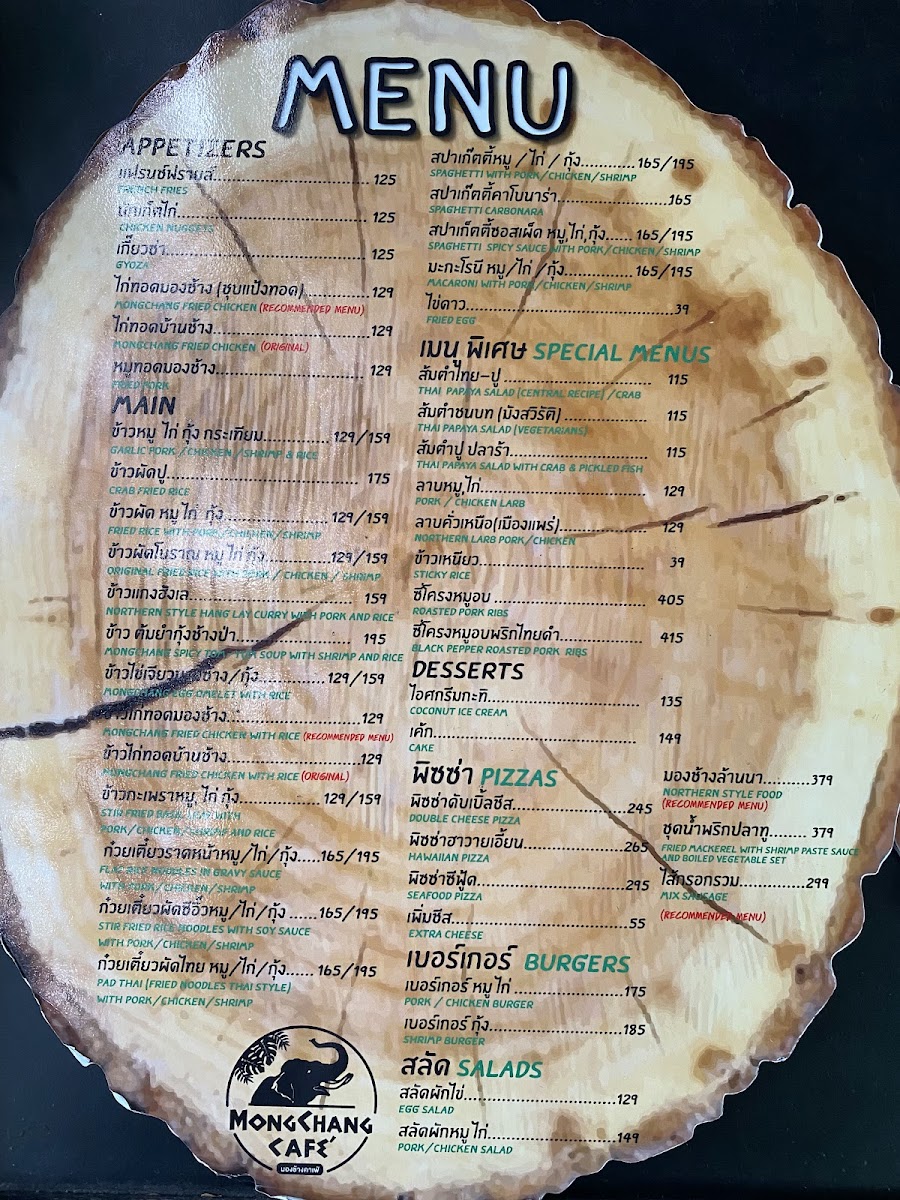 MENU
APPETIZERS
แฟรนช์ฟรายส์ 125
FRENCH FRIES
นักเก็ตไก่ 125
CHICKEN NUGGETS
เกี๊ยวซ่า 125
GYOZA
ไก่ทอดมองช้าง (ชุบแป้งทอด) 129
MONGCHANG FRIED CHICKEN (RECOMMENDED MENU)
ไก่ทอดบ้านช้าง 129
MONGCHANG FRIED CHICKEN (ORIGINAL)
หมูทอดมองช้าง 129
FRIED PORK
MAIN
ข้าวหมู ไก่ กุ้ง กระเทียม 129/159
GARLIC PORK / CHICKEN / SHRIMP & RICE
ข้าวผัดปู 175
CRAB FRIED RICE
ข้าวผัด หมู ไก่ กุ้ง 129/159
FRIED RICE WITH PORK / CHICKEN / SHRIMP
ข้าวผัดโบราณ หมู ไก่ กุ้ง 129/159
ORIGINAL FRIED RICE WITH PORK / CHICKEN / SHRIMP
ข้าวแกงฮังเล 159
NORTHERN STYLE HANG LAY CURRY WITH PORK AND RICE
ข้าว ต้มยำกุ้งช้างป่า 195
MONGCHANG SPICY TOM YUM SOUP WITH SHRIMP AND RICE
ข้าวไข่เจียวมองช้าง/กุ้ง 129/159
MONGCHANG EGG OMELET WITH RICE
ข้าวไก่ทอดมองช้าง 129
MONGCHANG FRIED CHICKEN WITH RICE (RECOMMENDED MENU)
ข้าวไก่ทอดบ้านช้าง 129
MONGCHANG FRIED CHICKEN WITH RICE (ORIGINAL)
ข้าวกะเพราหมู ไก่ กุ้ง 129/159
STIR FRIED BASIL LEAF WITH
PORK/CHICKEN/SHRIMP AND RICE
ก๋วยเตี๋ยวราดหน้าหมู/ไก่/กุ้ง 165/195
FLAT RICE NOODLES IN GRAVY SAUCE
WITH PORK/CHICKEN/SHRIMP
ก๋วยเตี๋ยวผัดซีอิ๊วหมู/ไก่/กุ้ง 165/195
STIR FRIED RICE NOODLES WITH SOY SAUCE
WITH PORK/CHICKEN/SHRIMP
ก๋วยเตี๋ยวผัดไทย หมู/ไก่/กุ้ง 165/195
PAD THAI (FRIED NOODLES THAI STYLE)
WITH PORK/CHICKEN/SHRIMP
MONGCHANG
CAFE'
มองช้างคาเฟ่
สปาเก็ตตี้หมู / ไก่ / กุ้ง 165/195
SPAGHETTI WITH PORK/CHICKEN/SHRIMP
สปาเก็ตตี้คาโบนาร่า 165
SPAGHETTI CARBONARA
สปาเก็ตตี้ซอสเผ็ด หมู ไก่ กุ้ง 165/195
SPAGHETTI SPICY SAUCE WITH PORK/CHICKEN/SHRIMP
มะกะโรนี หมู/ไก่ /กุ้ง 165/195
MACARONI WITH PORK/CHICKEN/SHRIMP
ไข่ดาว 39
FRIED EGG
เมนู พิเศษ SPECIAL MENUS
ส้มตำไทย-ปู 115
THAI PAPAYA SALAD (CENTRAL RECIPE) /CRAB
ส้มตำชนบท (มังสวิรัติ) 115
THAI PAPAYA SALAD (VEGETARIANS)
ส้มตำปู ปลาร้า 115
THAI PAPAYA SALAD WITH CRAB & PICKLED FISH
ลาบหมู,ไก่ 129
PORK / CHICKEN LARB
ลาบคั่วเหนือ(เมืองแพร่) 129
NORTHERN LARB PORK/CHICKEN
ข้าวเหนียว 39
STICKY RICE
ซี่โครงหมูอบ 405
ROASTED PORK RIBS
ซี่โครงหมูอบพริกไทยดำ 415
BLACK PEPPER ROASTED PORK RIBS
DESSERTS
ไอศกรีมกะทิ 135
COCONUT ICE CREAM
เค้ก 149
CAKE
พิซซ่า PIZZAS
พิซซ่าดับเบิ้ลชีส 245
DOUBLE CHEESE PIZZA
พิซซ่าฮาวายเอี้ยน 265
HAWAIIAN PIZZA
พิซซ่าซีฟู้ด 295
SEAFOOD PIZZA
เพิ่มชีส 55
EXTRA CHEESE
เบอร์เกอร์ BURGERS
เบอร์เกอร์ หมู ไก่ 175
PORK / CHICKEN BURGER
เบอร์เกอร์ กุ้ง 185
SHRIMP BURGER
สลัด SALADS
สลัดผักไข่ 129
EGG SALAD
สลัดผักหมู ไก่ 149
PORK/CHICKEN SALAD
มองช้างล้านนา 379
NORTHERN STYLE FOOD
(RECOMMENDED MENU)
ชุดน้ำพริกปลาทู 379
FRIED MACKEREL WITH SHRIMP PASTE SAUCE
AND BOILED VEGETABLE SET
ไส้กรอกรวม 299
MIX SAUSAGE
(RECOMMENDED MENU)